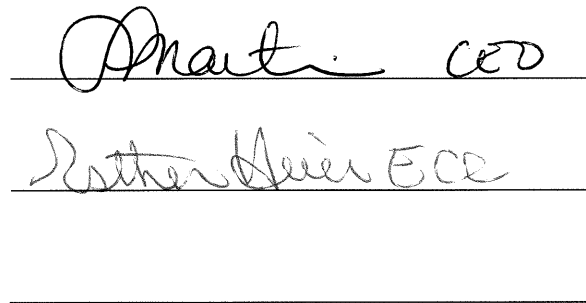 Martin CEO
Esther Heier ECE